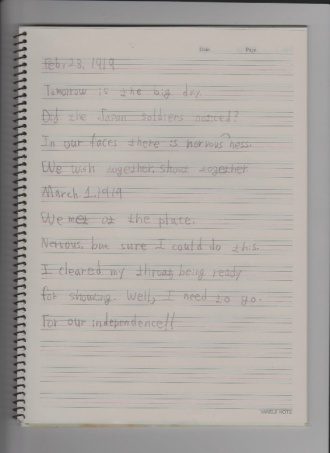 Date Page
Feb. 23, 1919
Tomorrow is the big day.
Did the Japan soldiers noticed?
In our faces there is nervousness.
We wish together. Shout together
March 1, 1919
We met at the place.
Nervous, but sure I could do this.
I cleared my throat being ready
for shouting. Well, I need to go.
For our independence!!